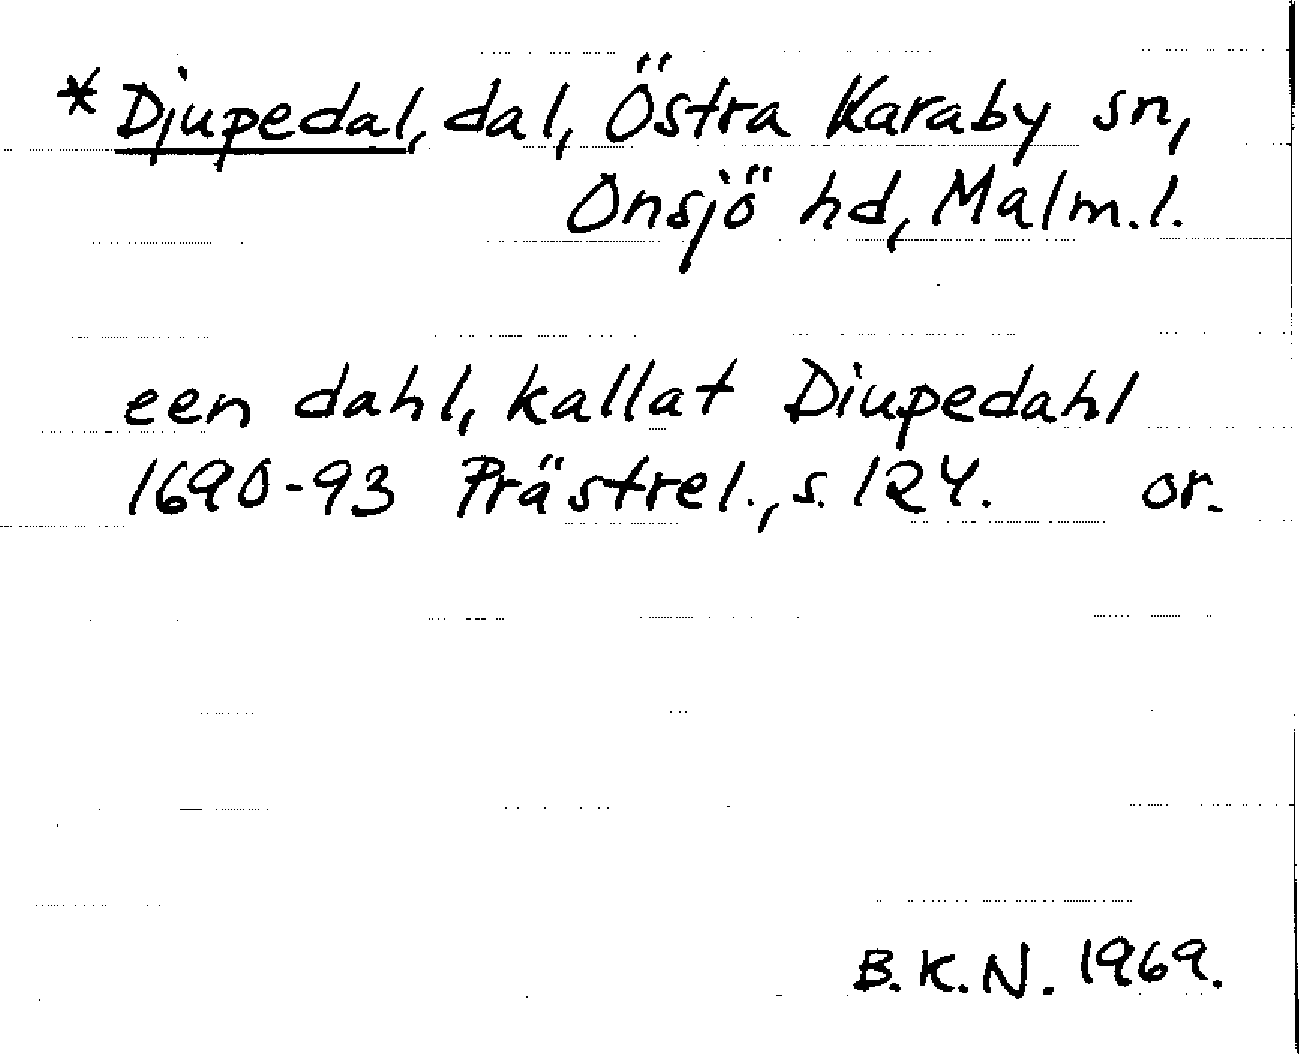 * Djupedal, dal, Östra Karaby sn,
Onsjö hd, Malm.l.
een dahl, kallat Diupedahl
1690-93 Prästrel., s. 124. or.
B.K.N. 1969.